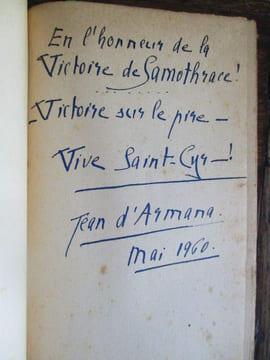 En l'honneur de la
Victoire de Samothrace!
- Victoire sur le pire -
Vive Saint-Cyr -!
Jean d'Armana.
Mai 1960.